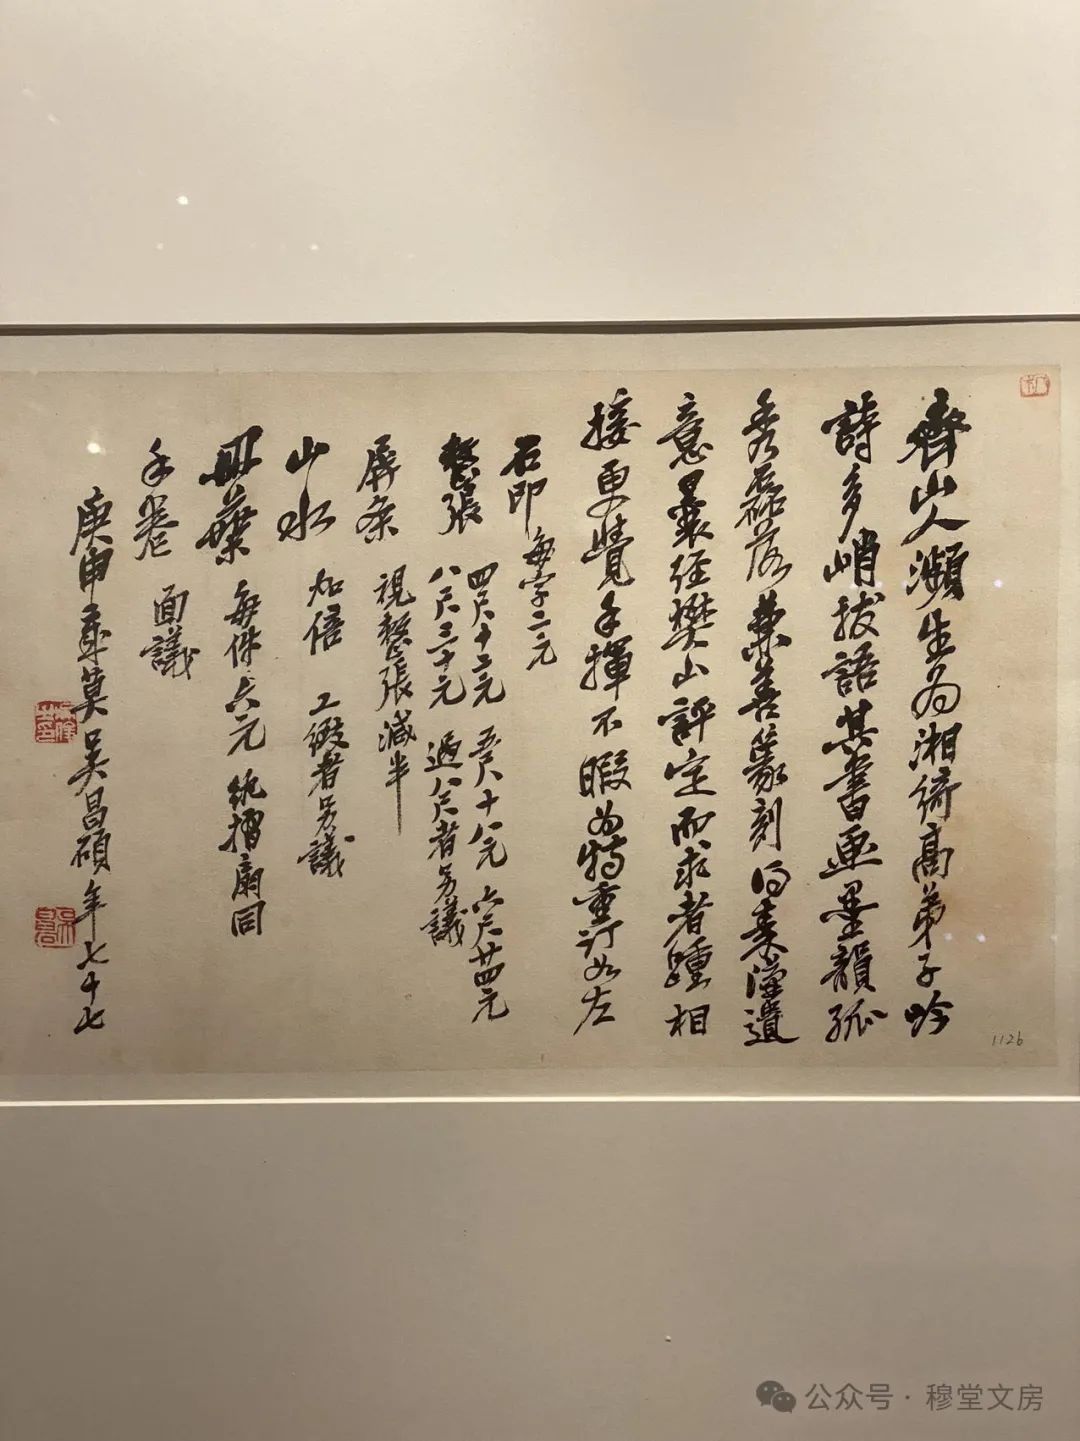 齊山人瀕生為湘綺高弟子吟
詩多峭拔語其書畫墨韻孤
秀磊落兼善篆刻得秦漢遺
意曩經樊山評定而求者踵相
接更覺手揮不暇為特重訂如左
石印 每字二元
整張 四尺十二元 五尺十八元 六尺廿四元
八尺三十元 過八尺者另議
屏条 視整張減半
山水 加倍 工緻者另議
冊葉 每件六元 紈摺扇同
手卷 面議
庚申歲莫吳昌碩年七十七
1126
公众号·穆堂文房